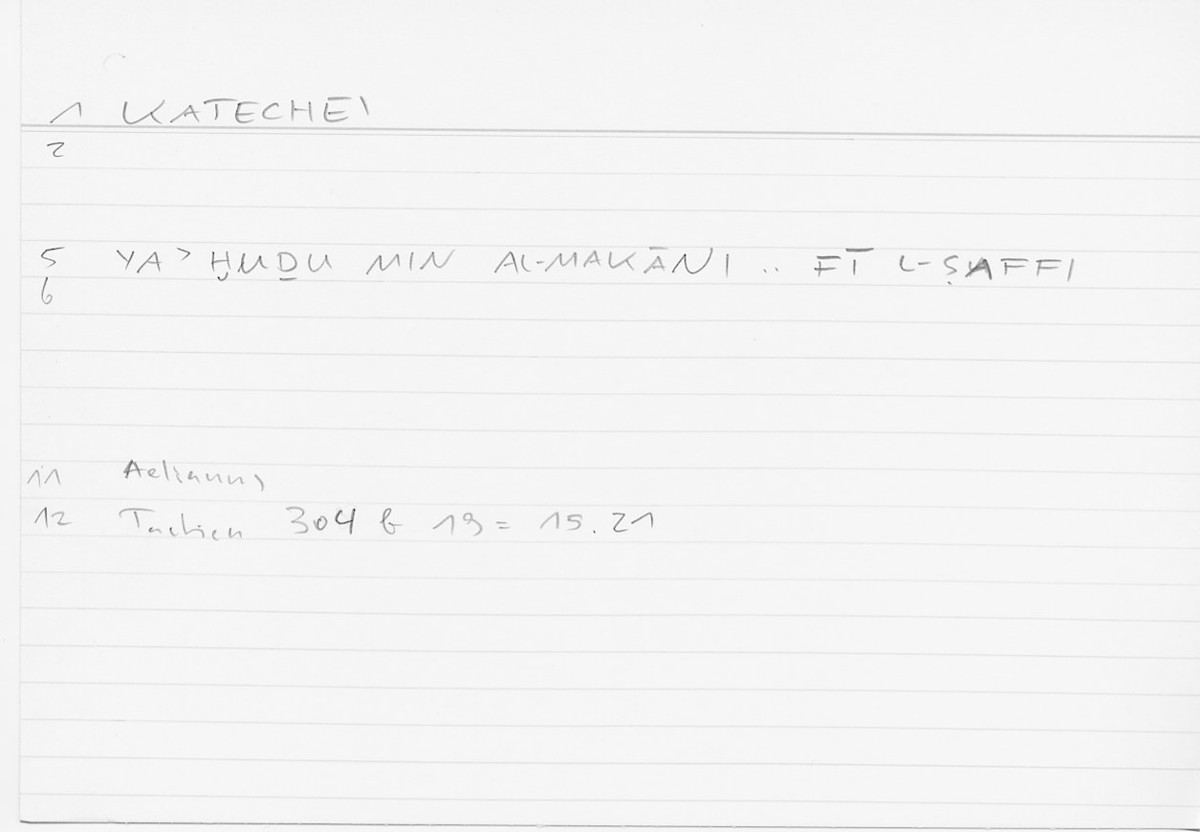 1 KATECHEI
2
5 YAʾḪUḎU MIN AL-MAKĀNI .. FĪ L-ṢAFFI
6
11 Aelianus
12 Tactica 304 b 19 = 15.21